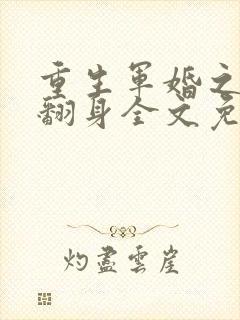 重生軍婚之
翻身全文免
灼盡雲崖